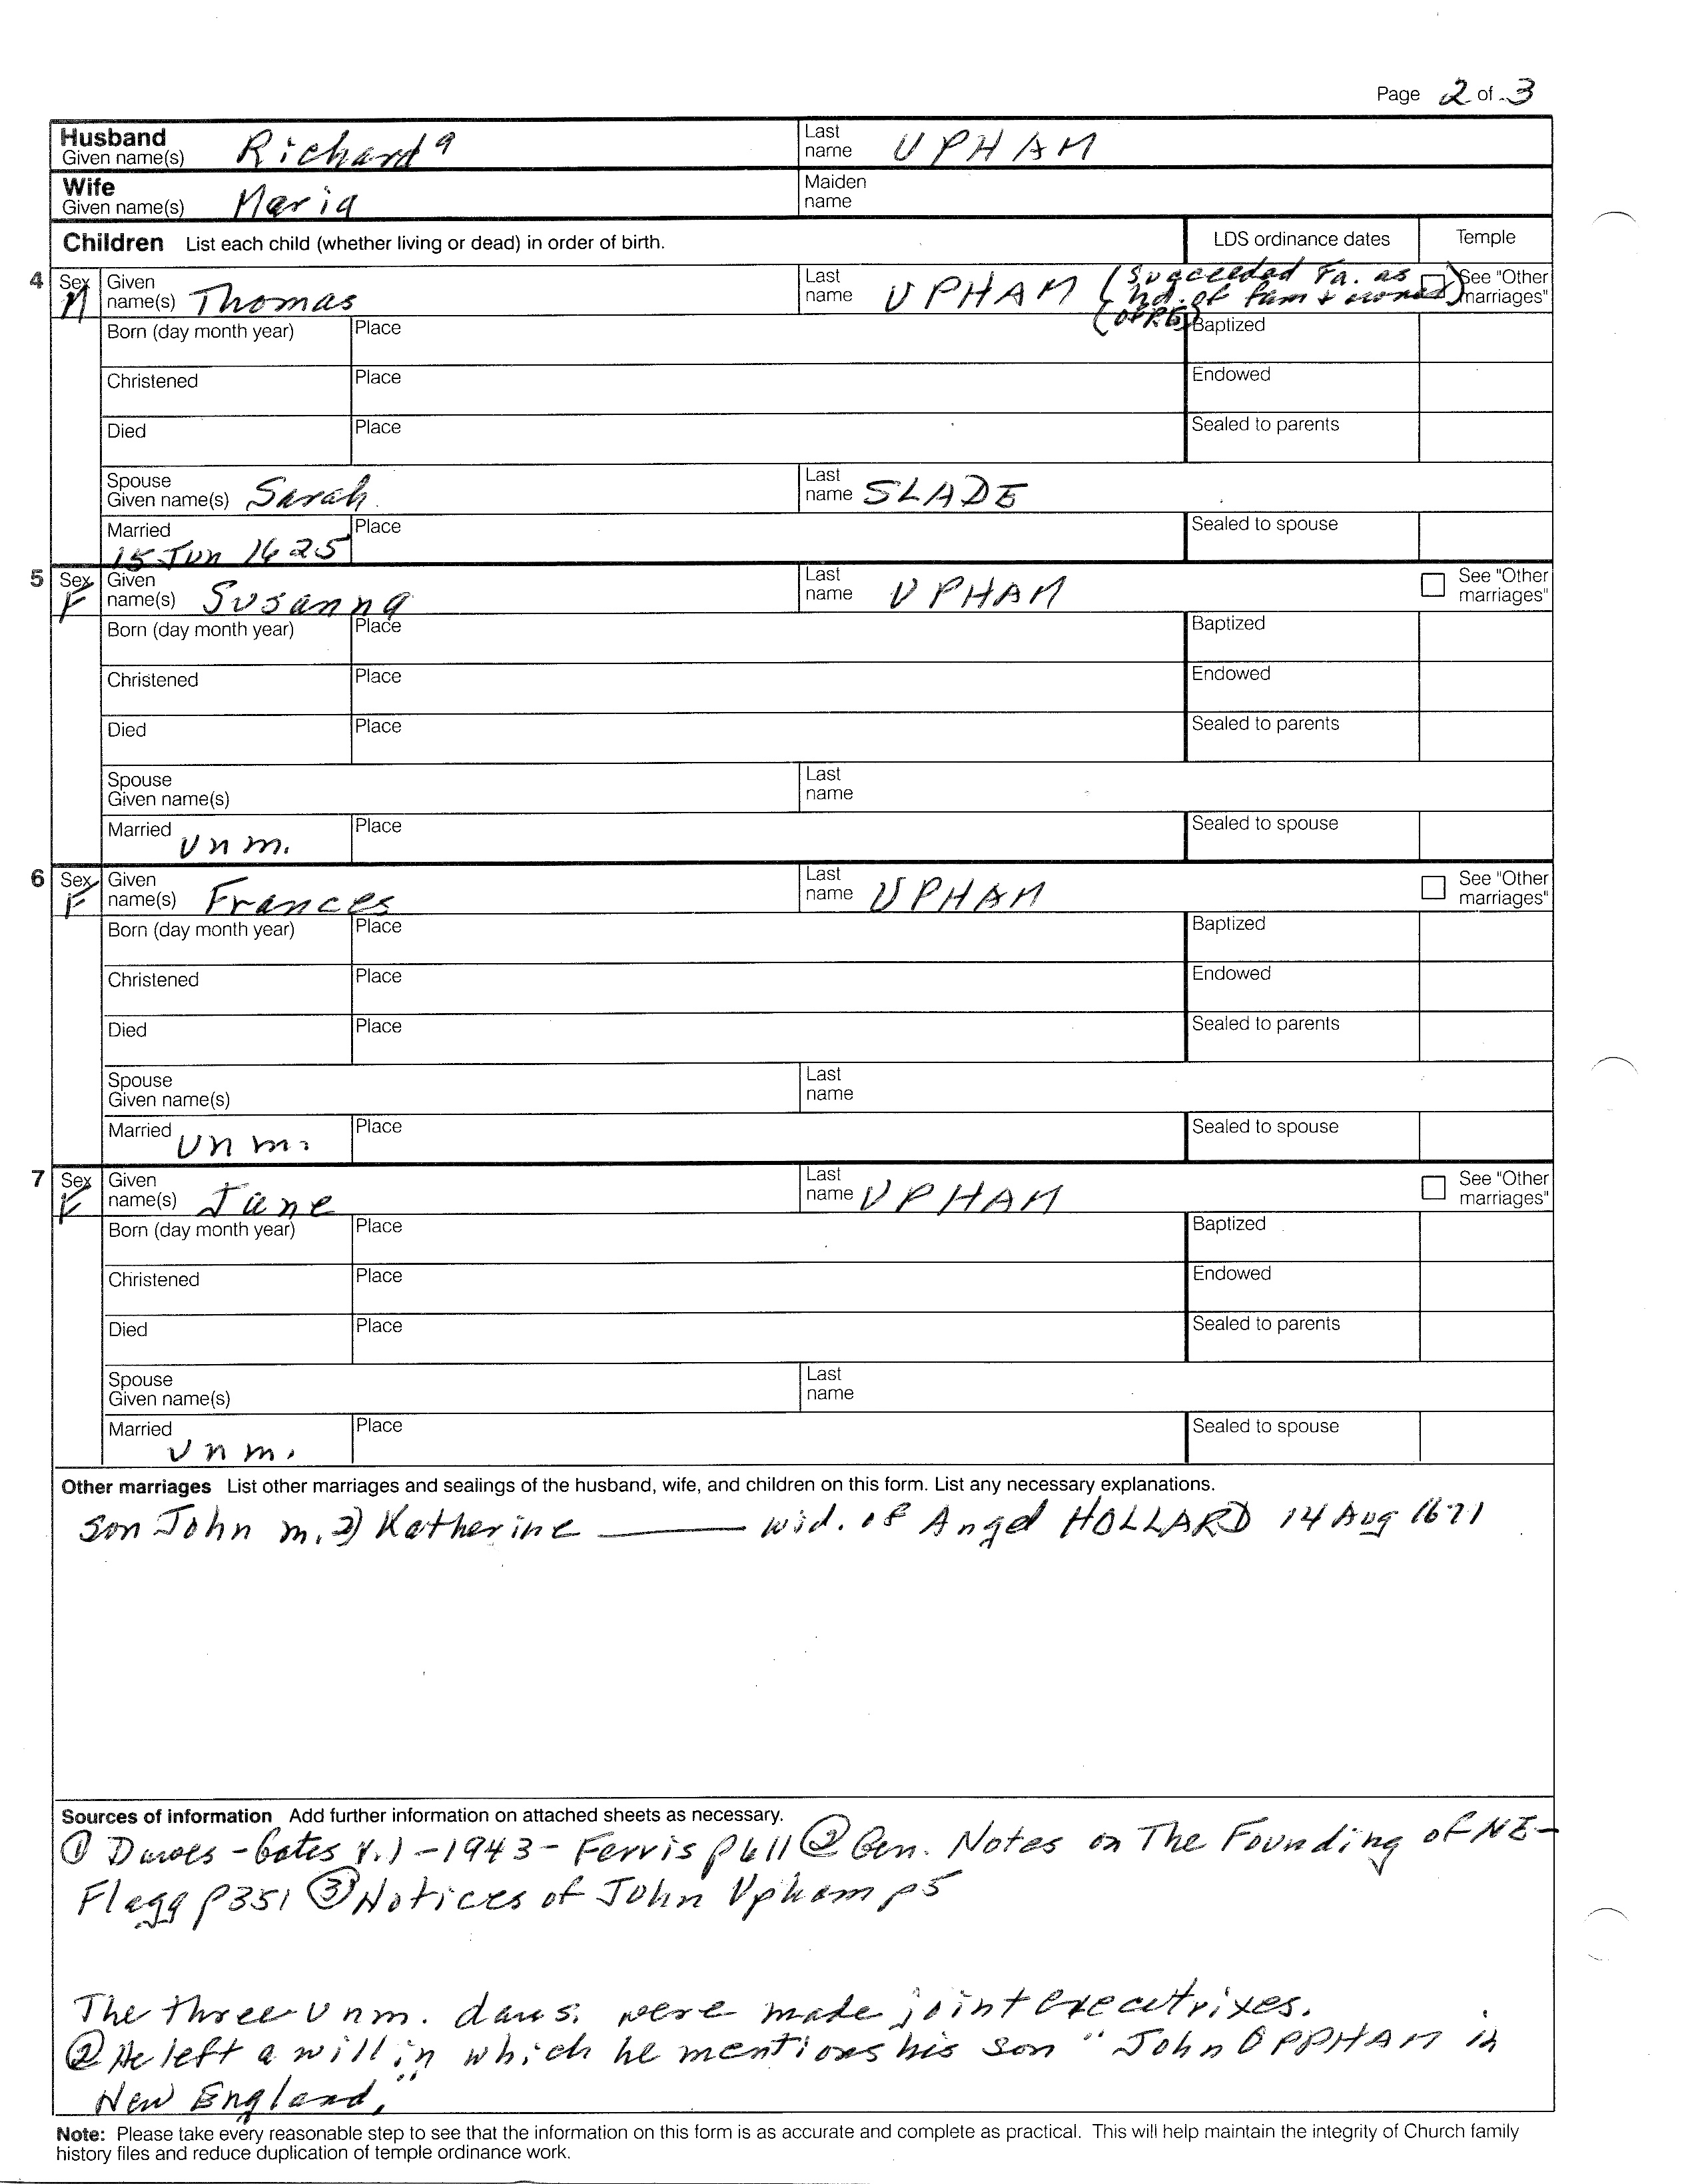 Page 2 of 3
Husband
Given name(s) Richard 9 Last name UPHAM
Wife
Given name(s) Maria Maiden name
Children List each child (whether living or dead) in order of birth. LDS ordinance dates Temple
4 Sex M Given name(s) Thomas Last name UPHAM (Succeeded Fa. as hd. of fam + See "Other marriages"
Born (day month year) Place Baptized
Christened Place Endowed
Died Place Sealed to parents
Spouse Given name(s) Sarah Last name SLADE
Married 15 Jun 1625 Place Sealed to spouse
5 Sex F Given name(s) Susanna Last name UPHAM See "Other marriages"
Born (day month year) Place Baptized
Christened Place Endowed
Died Place Sealed to parents
Spouse Given name(s) Last name
Married Unm. Place Sealed to spouse
6 Sex F Given name(s) Frances Last name UPHAM See "Other marriages"
Born (day month year) Place Baptized
Christened Place Endowed
Died Place Sealed to parents
Spouse Given name(s) Last name
Married Unm. Place Sealed to spouse
7 Sex F Given name(s) Jane Last name UPHAM See "Other marriages"
Born (day month year) Place Baptized
Christened Place Endowed
Died Place Sealed to parents
Spouse Given name(s) Last name
Married Unm. Place Sealed to spouse
Other marriages List other marriages and sealings of the husband, wife, and children on this form. List any necessary explanations.
Son John m. 2) Katherine ——— wid. of Angel HOLLARD 14 Aug 1671
Sources of information Add further information on attached sheets as necessary.
① Dawes-Gates V.1-1943-Ferris p611 ② Gen. Notes on The Founding of NE-
Flagg p351 ③ Notices of John Upham p5
The three Unm. daus. were made joint executrixes.
② He left a will in which he mentions his son "John OPPHAM in
New England."
Note: Please take every reasonable step to see that the information on this form is as accurate and complete as practical. This will help maintain the integrity of Church family
history files and reduce duplication of temple ordinance work.